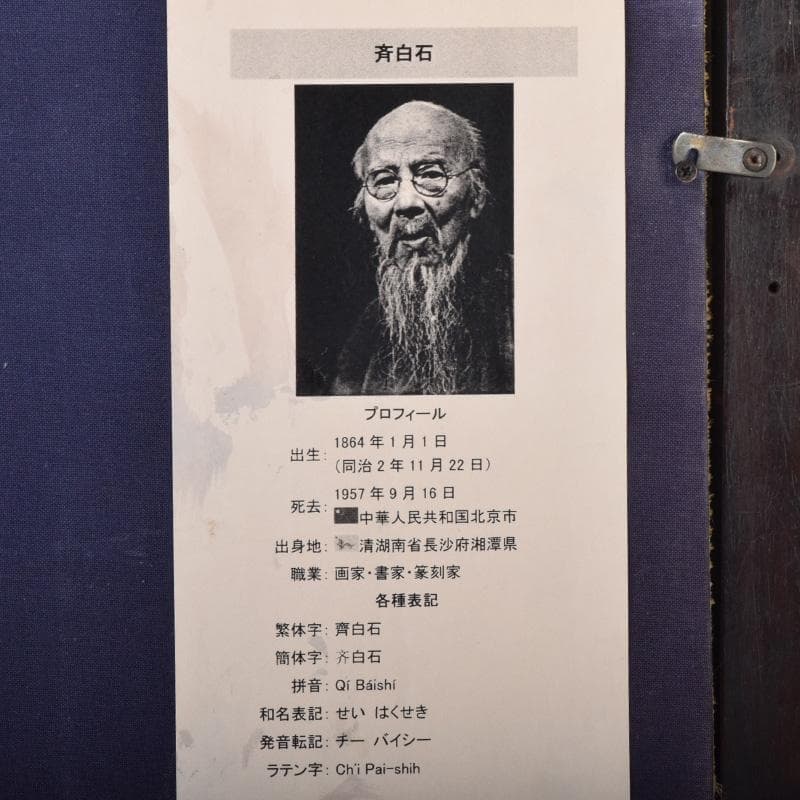 斉白石
プロフィール
出生: 1864年1月1日
(同治2年11月22日)
死去: 1957年9月16日
中華人民共和国北京市
出身地: 清湖南省長沙府湘潭県
職業: 画家・書家・篆刻家
各種表記
繁体字: 齊白石
簡体字: 齐白石
拼音: Qí Báishí
和名表記: せい はくせき
発音転記: チー バイシー
ラテン字: Ch'i Pai-shih